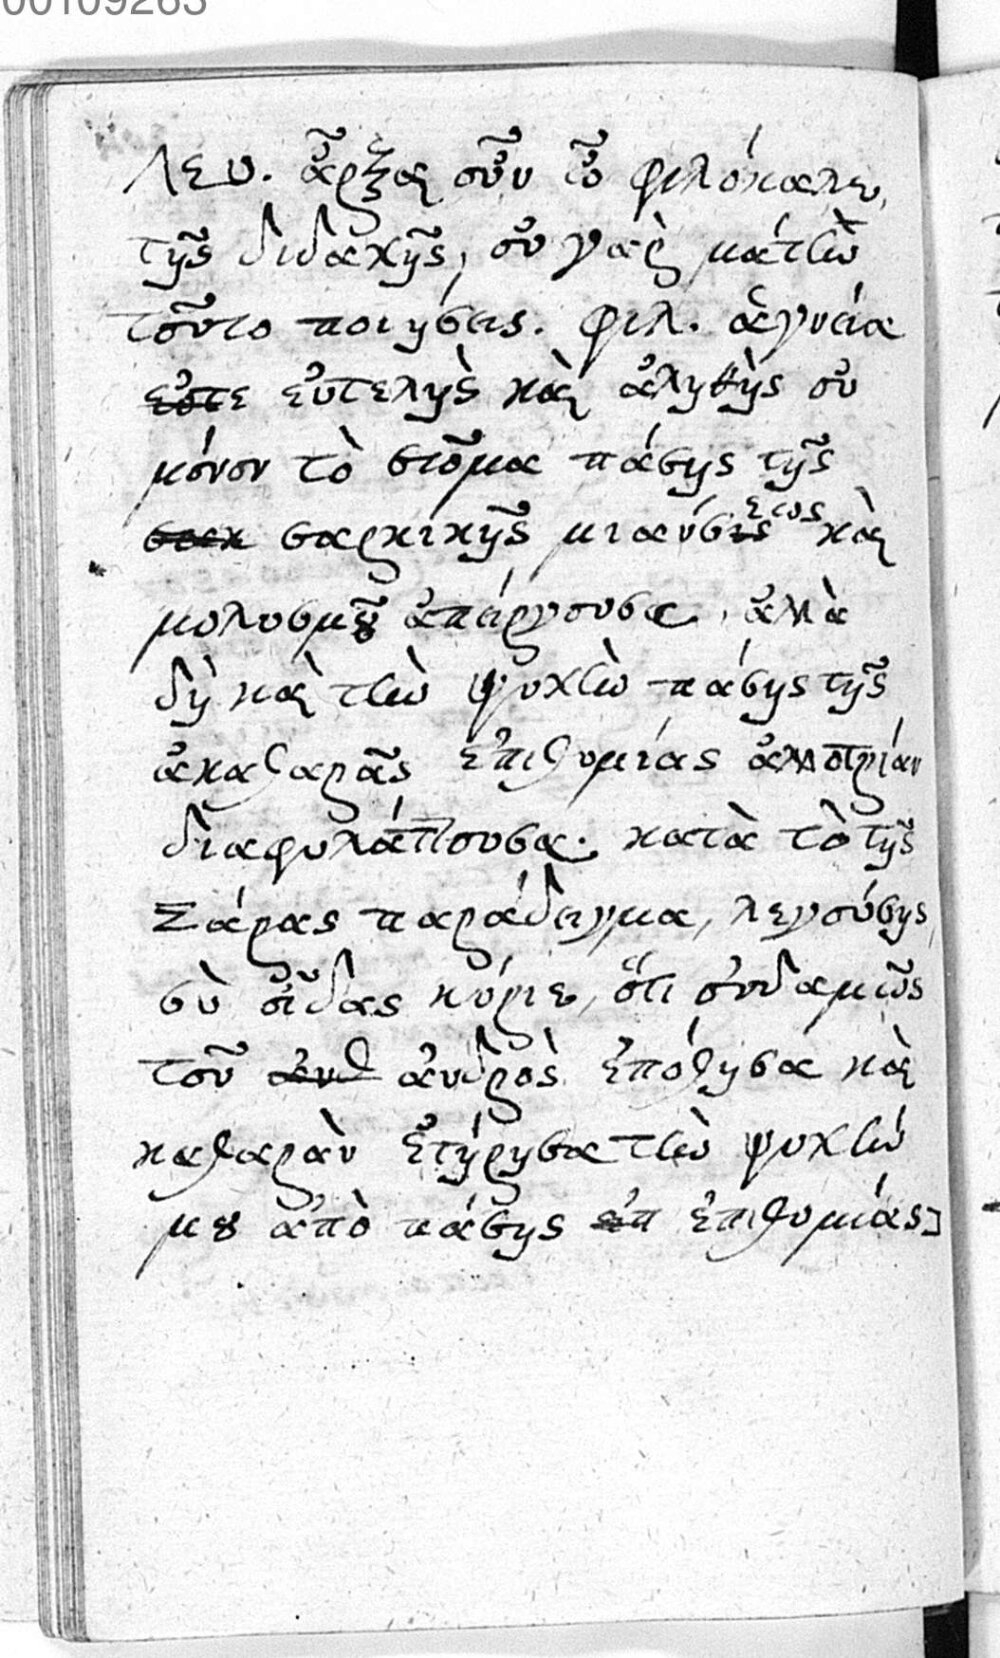 00109263
Λευ. ἆρξαι οὖν ὦ φιλόκαλε,
τῆς διδαχῆς, οὐ γὰρ μάτην
τοῦτο ποιήσεις. φιλ. ἁγνεία
ἐστε εὐτελὴς καὶ ἀληθὴς οὐ
μόνον τὸ σῶμα πάσης τῆς
σαρκ σαρκικῆς μιαύσεως καὶ
μολυσμοῦ ἀπείργουσα, ἀλλὰ
δὴ καὶ τὴν ψυχὴν πάσης τῆς
ἀκαθαρᾶς ἐπιθυμίας ἀλλοτρίαν
διαφυλάττουσα. κατὰ τὸ τῆς
Σάρας παράδειγμα, λεγούσης,
σὺ οἶδας κύριε, ὅτι οὐδαμῶς
τοῦ ἀνδ ἀνδρὸς ἐπόθησα καὶ
καθαρὰν ἐτήρησα τὴν ψυχήν
μου ἀπὸ πάσης επ ἐπιθυμίας]